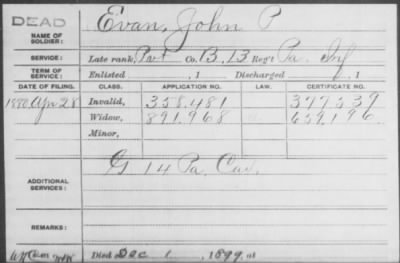 DEAD
NAME OF SOLDIER: Evan, John P
SERVICE: Late rank, Co. B, 13 Reg't Pa. Inf
TERM OF SERVICE: Enlisted , 1 Discharged , 1
DATE OF FILING. CLASS. APPLICATION NO. LAW. CERTIFICATE NO.
1880 Apr 28 Invalid, 358.481 377539
Widow, 891.968 659.196.
Minor,
ADDITIONAL SERVICES: G 14 Pa. Cav.
REMARKS:
Died Dec 1, 1899, at